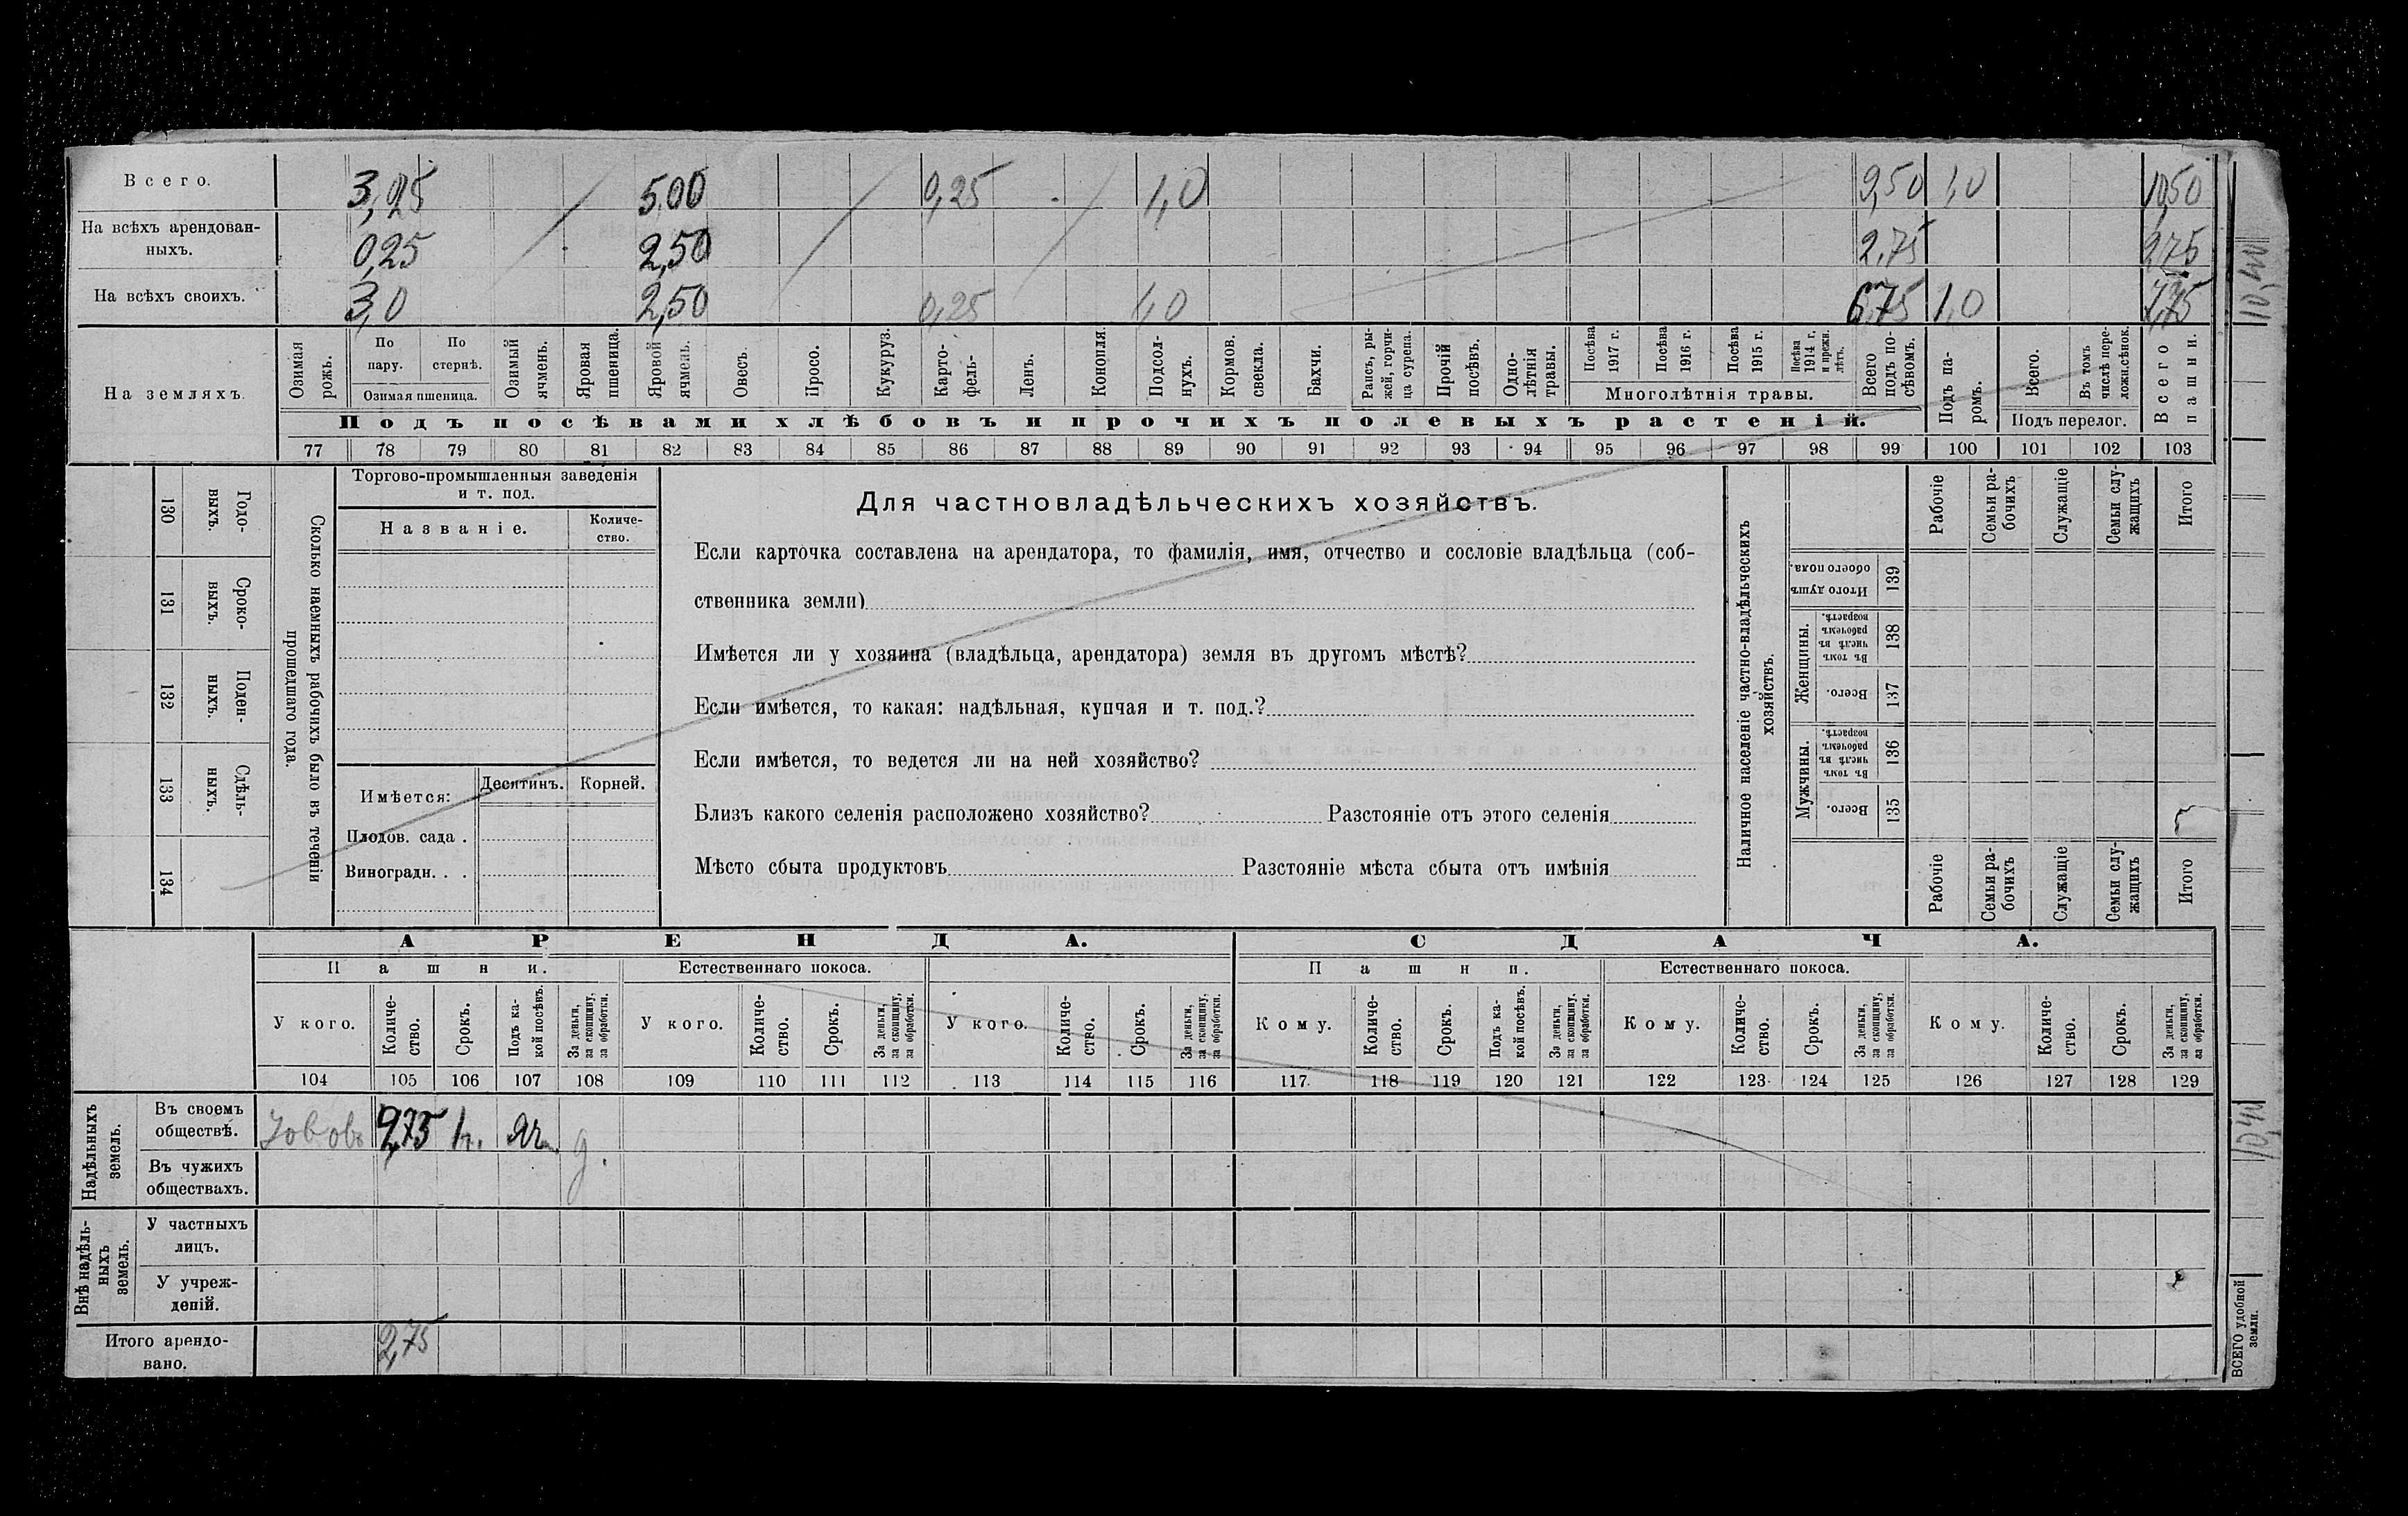 Всего. 3,25 5.00 0,25 1,0 9,50 1,0 10,50
На всѣхъ арендован-
ныхъ. 0,25 2,50 2,75 2,75
На всѣхъ своихъ. 3,0 2,50 0,25 1,0 6,75 1,0 7,75
На земляхъ.
Озимая рожь.
По пару.
По стернѣ.
Озимая пшеница.
Озимый ячмень.
Яровая пшеница.
Яровой ячмень.
Овесъ.
Просо.
Кукуруз.
Карто-
фель-
Ленъ.
Конопля.
Подсол-
нухъ.
Кормов.
свекла.
Бахчи.
Рапсъ, ры-
жей, горчи-
ца сурепа.
Прочій
посѣвъ.
Одно-
лѣтнія
травы.
Посѣва
1917 г.
Посѣва
1916 г.
Посѣва
1915 г.
Посѣва
1914 г.
и прежн.
лѣтъ.
Многолѣтнія травы.
Всего
подъ по-
сѣвомъ.
Подъ па-
ромъ.
Всего.
Въ томъ
числѣ пере-
ложн.сѣнок.
Подъ перелог.
Всего
пашни.
Подъ посѣвами хлѣбовъ и прочихъ полевыхъ растеній.
77 78 79 80 81 82 83 84 85 86 87 88 89 90 91 92 93 94 95 96 97 98 99 100 101 102 103
10,40
Годо-
выхъ.
130
Сроко-
ныхъ.
131
Поден-
ныхъ.
132
Сдѣль-
ныхъ.
133
134
Сколько наемныхъ рабочихъ было въ теченіи
прошедшаго года.
Торгово-промышленныя заведенія
и т. под.
Названіе.
Количе-
ство.
Имѣется:
Десятинъ.
Корней.
Плодов. сада .
Виноградн. . .
Для частновладѣльческихъ хозяйствъ.
Если карточка составлена на арендатора, то фамилія, имя, отчество и сословіе владѣльца (соб-
ственника земли)
Имѣется ли у хозяина (владѣльца, арендатора) земля въ другомъ мѣстѣ?
Если имѣется, то какая: надѣльная, купчая и т. под.?
Если имѣется, то ведется ли на ней хозяйство?
Близъ какого селенія расположено хозяйство? Разстояніе отъ этого селенія
Мѣсто сбыта продуктовъ Разстояніе мѣста сбыта отъ имѣнія
Наличное населеніе частно-владѣльческихъ
хозяйствъ.
Рабочіе
Семьи ра-
бочихъ
Служащіе
Семьи слу-
жащихъ
Итого
Итого душъ
обоего пола.
139
Женщины.
Въ томъ
числѣ въ
рабочемъ
возрастѣ.
138
Всего.
137
Мужчины.
Въ томъ
числѣ въ
рабочемъ
возрастѣ.
136
Всего.
135
Рабочіе
Семьи ра-
бочихъ
Служащіе
Семьи слу-
жащихъ
Итого
АРЕНДА. СДАЧА.
Пашни. Естественнаго покоса. Пашни. Естественнаго покоса.
У кого.
Количе-
ство.
Срокъ.
Подъ ка-
кой посѣвъ.
За деньги,
за скопщину,
за обработки.
У кого.
Количе-
ство.
Срокъ.
За деньги,
за скопщину,
за обработки.
У кого.
Количе-
ство.
Срокъ.
За деньги,
за скопщину,
за обработки.
Кому.
Количе-
ство.
Срокъ.
Подъ ка-
кой посѣвъ.
За деньги,
за скопщину,
за обработки.
Кому.
Количе-
ство.
Срокъ.
За деньги,
за скопщину,
за обработки.
Кому.
Количе-
ство.
Срокъ.
За деньги,
за скопщину,
за обработки.
104 105 106 107 108 109 110 111 112 113 114 115 116 117 118 119 120 121 122 123 124 125 126 127 128 129
Надѣльныхъ
земель.
Въ своемъ
обществѣ. 2,75 1г. Яч. д.
Въ чужихъ
обществахъ.
Внѣ надѣль-
ныхъ
земель.
У частныхъ
лицъ.
У учреж-
деній.
Итого арендо-
вано. 2,75
10,40
ВСЕГО удобной
земли.